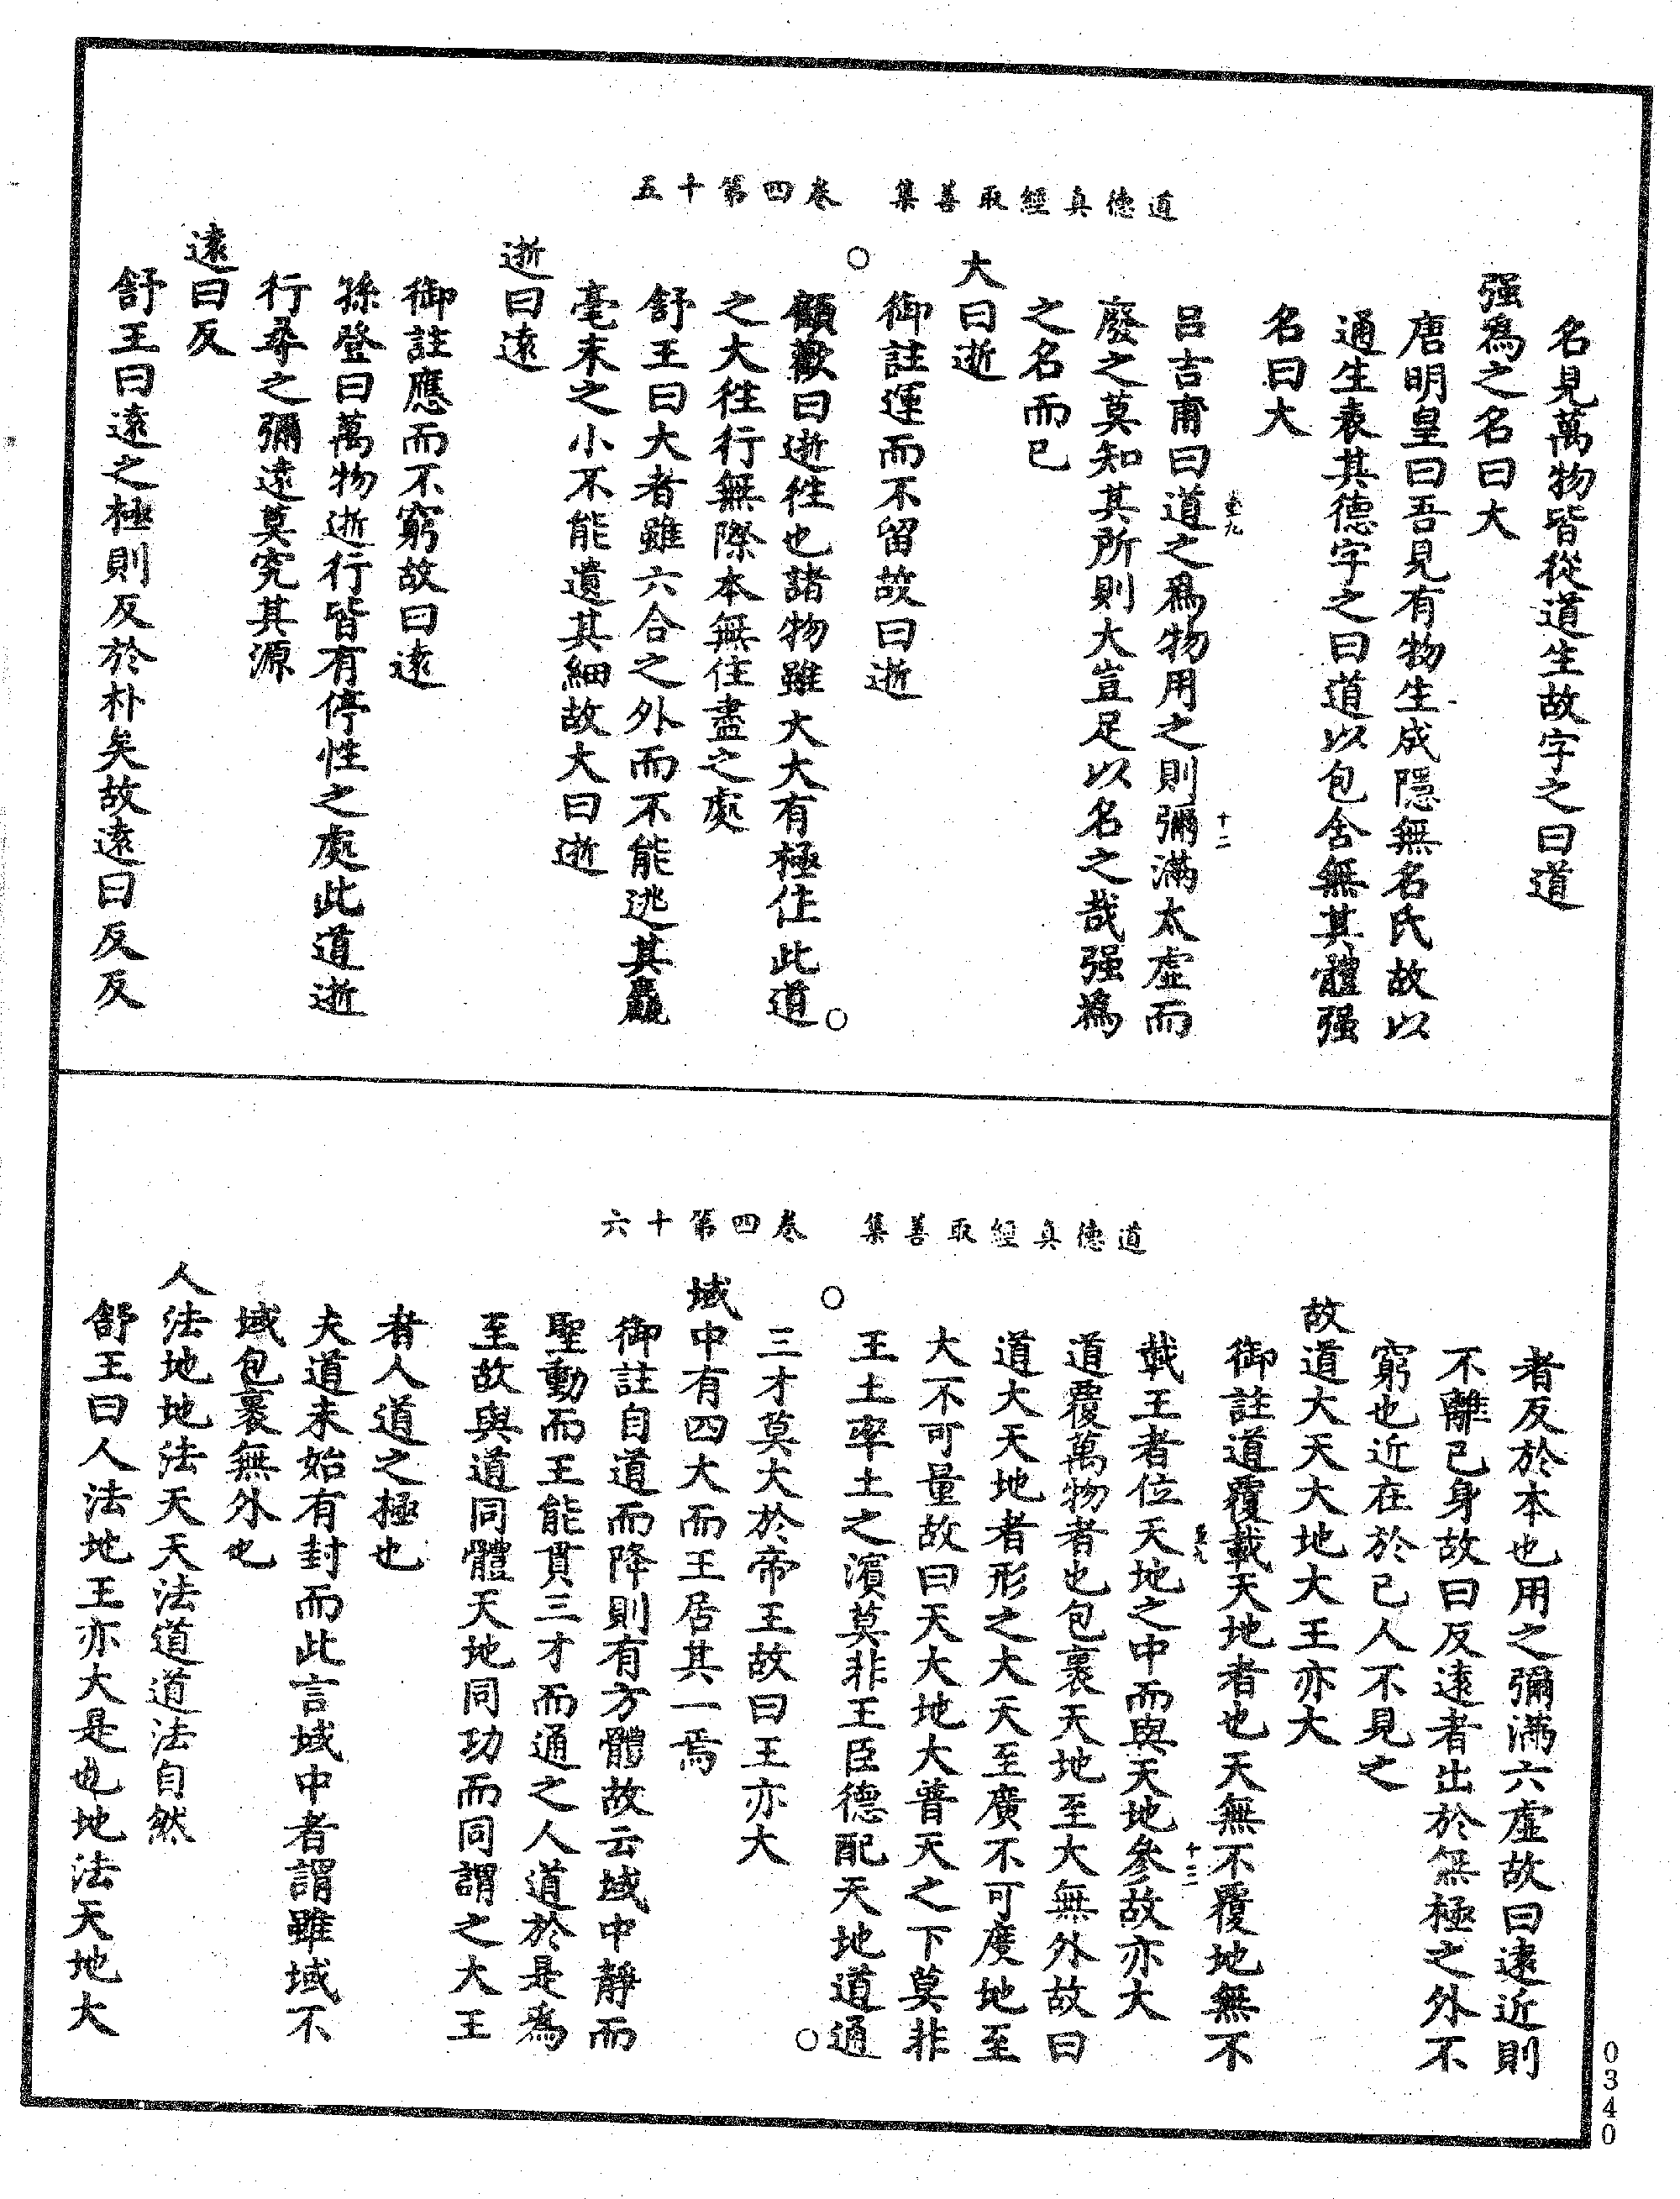 道德真經取善集　卷四第十五
名見萬物皆從道生故字之曰道
强爲之名曰大
唐明皇曰吾見有物生成隱無名氏故以
通生表其德字之曰道以包含無其體强
名曰大
呂吉甫曰道之爲物用之則彌滿太虛而
廢之莫知其所則大豈足以名之哉强爲
之名而已
大曰逝
御註運而不留故曰逝
顧歡曰逝徃也諸物雖大大有極住此道
之大徃行無際本無住盡之處
舒王曰大者雖六合之外而不能逃其麤
毫末之小不能遺其細故大曰逝
逝曰遠
御註應而不窮故曰遠
孫登曰萬物逝行皆有停性之處此道逝
行尋之彌遠莫究其源
遠曰反
舒王曰遠之極則反於朴矣故遠曰反反
道德真經取善集　卷四第十六
者反於本也用之彌滿六虛故曰遠近則
不離己身故曰反遠者出於無極之外不
窮也近在於己人不見之
故道大天大地大王亦大
御註道覆載天地者也天無不覆地無不
載王者位天地之中而與天地參故亦大
道覆萬物者也包裹天地至大無外故曰
道大天地者形之大天至廣不可度地至
大不可量故曰天大地大普天之下莫非
王土率土之濱莫非王臣德配天地道通
三才莫大於帝王故曰王亦大
域中有四大而王居其一焉
御註自道而降則有方體故云域中靜而
聖動而王能貫三才而通之人道於是爲
至故與道同體天地同功而同謂之大王
者人道之極也
夫道未始有封而此言域中者謂雖域不
域包裹無外也
人法地地法天天法道道法自然
舒王曰人法地王亦大是也地法天地大
0340